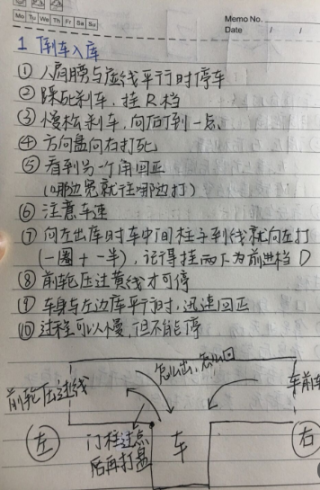 Mo Tu We Th Fr Sa Su
Memo No.
Date / /
1 倒车入库
① 人肩膀与虚线平行时停车
② 踩死刹车,挂R档
③ 慢松刹车,向后倒一点
④ 方向盘向右打死
⑤ 看到另一个角回正
(哪边宽就往哪边打)
⑥ 注意车速
⑦ 向左出库时车中间柱子到线就向左打
(一圈+一半),记得挂两下为前进档D
⑧ 前轮压过黄线才可停
⑨ 车身与左边库平行时,迅速回正
⑩ 过程可以慢,但不能停
怎么出,怎么回
前轮压过线
车前
左
门柱过点
后再打盘
车
右